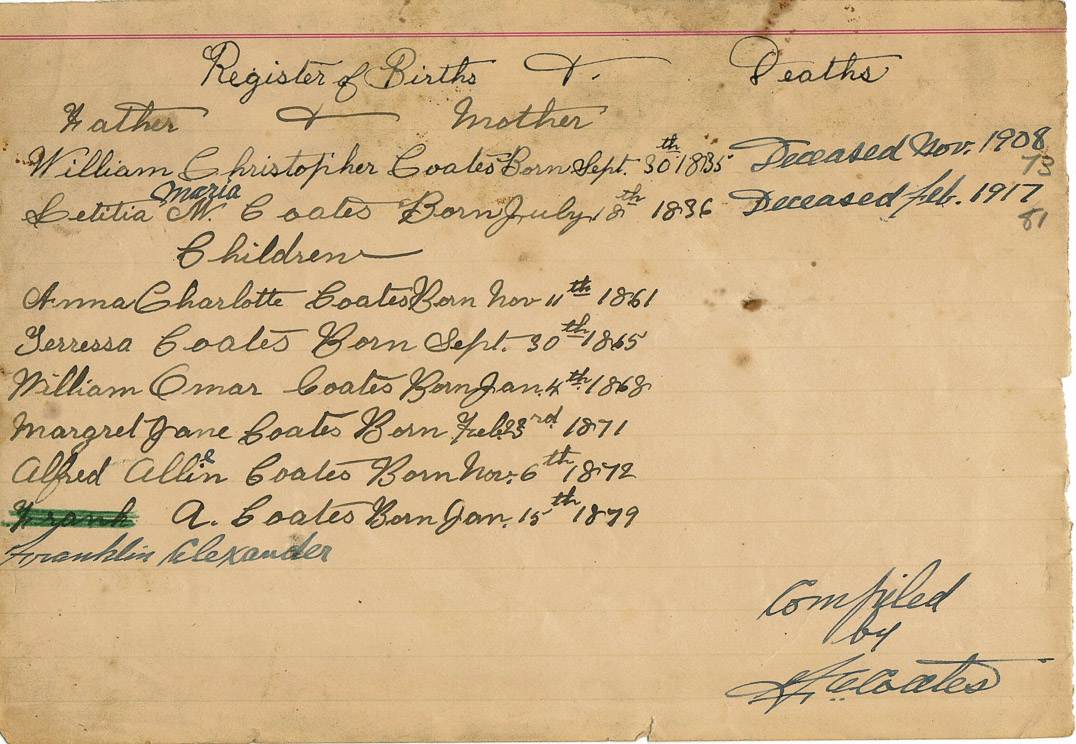 Register of Births & Deaths
Father & Mother
William Christopher Coates Born Sept. 30th 1835 Deceased Nov. 1908
73
Maria
Letitia M. Coates Born July 18th 1836 Deceased feb. 1917
81
Children
Anna Charlotte Coates Born Nov 11th 1861
Terressa Coates Born Sept. 30th 1865
William Omar Coates Born Jan. 4th 1868
Margret Jane Coates Born Feb. 23rd 1871
Alfred Allie Coates Born Nov. 6th 1872
Frank A. Coates Born Jan. 15th 1879
Franklin Alexander
Compiled
by
Coates